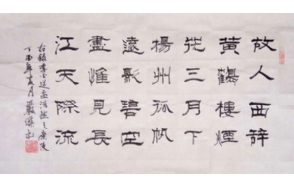 故人西辭
黃鶴樓煙
花三月下
楊州孤帆
遠影碧空
盡惟見長
江天際流
右錄李白送孟浩然之廣陵